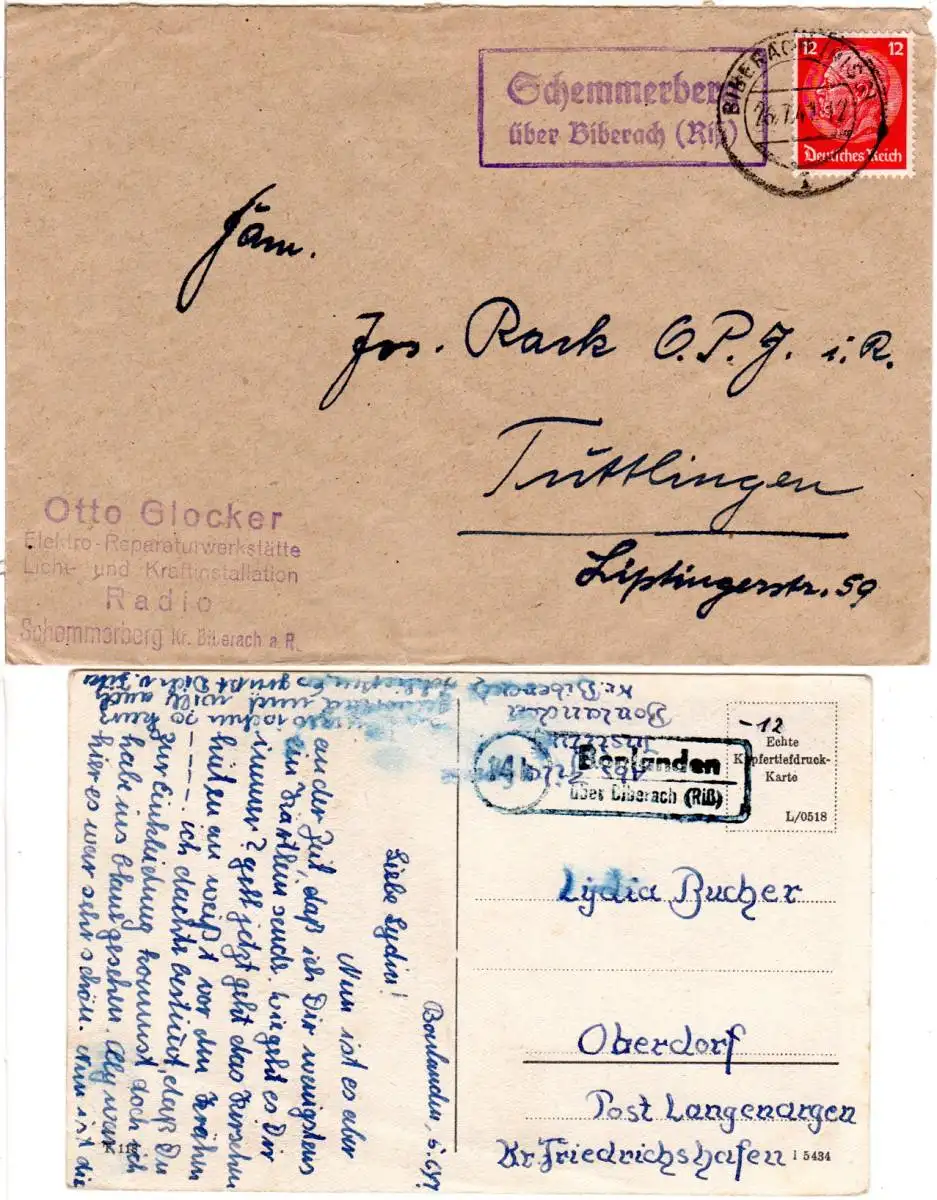 Schemmerberg
über Biberach (Riß)
BIBERACH (RISS)
26.7.41.12
1
12 12
Deutsches Reich
Fam.
Jos. Rack O.P.J. i.R.
Tuttlingen
Liptingerstr. 59
Otto Glocker
Elektro-Reparaturwerkstätte
Licht- und Kraftinstallation
Radio
Schemmerberg Kr. Biberach a. R.
Bonlanden
Kr. Biberach
14b
Bonlanden
über Biberach (Riß)
-12
Echte
Kupfertiefdruck-
Karte
L/0518
Lydia Bucher
Oberdorf
Post Langenargen
Kr. Friedrichshafen
I 5434
K 118
Bonlanden,
Liebe Lydia!
Nun ist es aber
an der Zeit, daß ich Dir wenigstens
ein Kärtlein sende. Wie geht es Dir
immer? gelt jetzt geht das
hüten an weißt vor den Krähen
ich dachte bestimmt, daß Du
zur Einkleidung kommst doch ich
habe ins blaue gesehen. Aly war
hier es war sehr schön. nun ist die